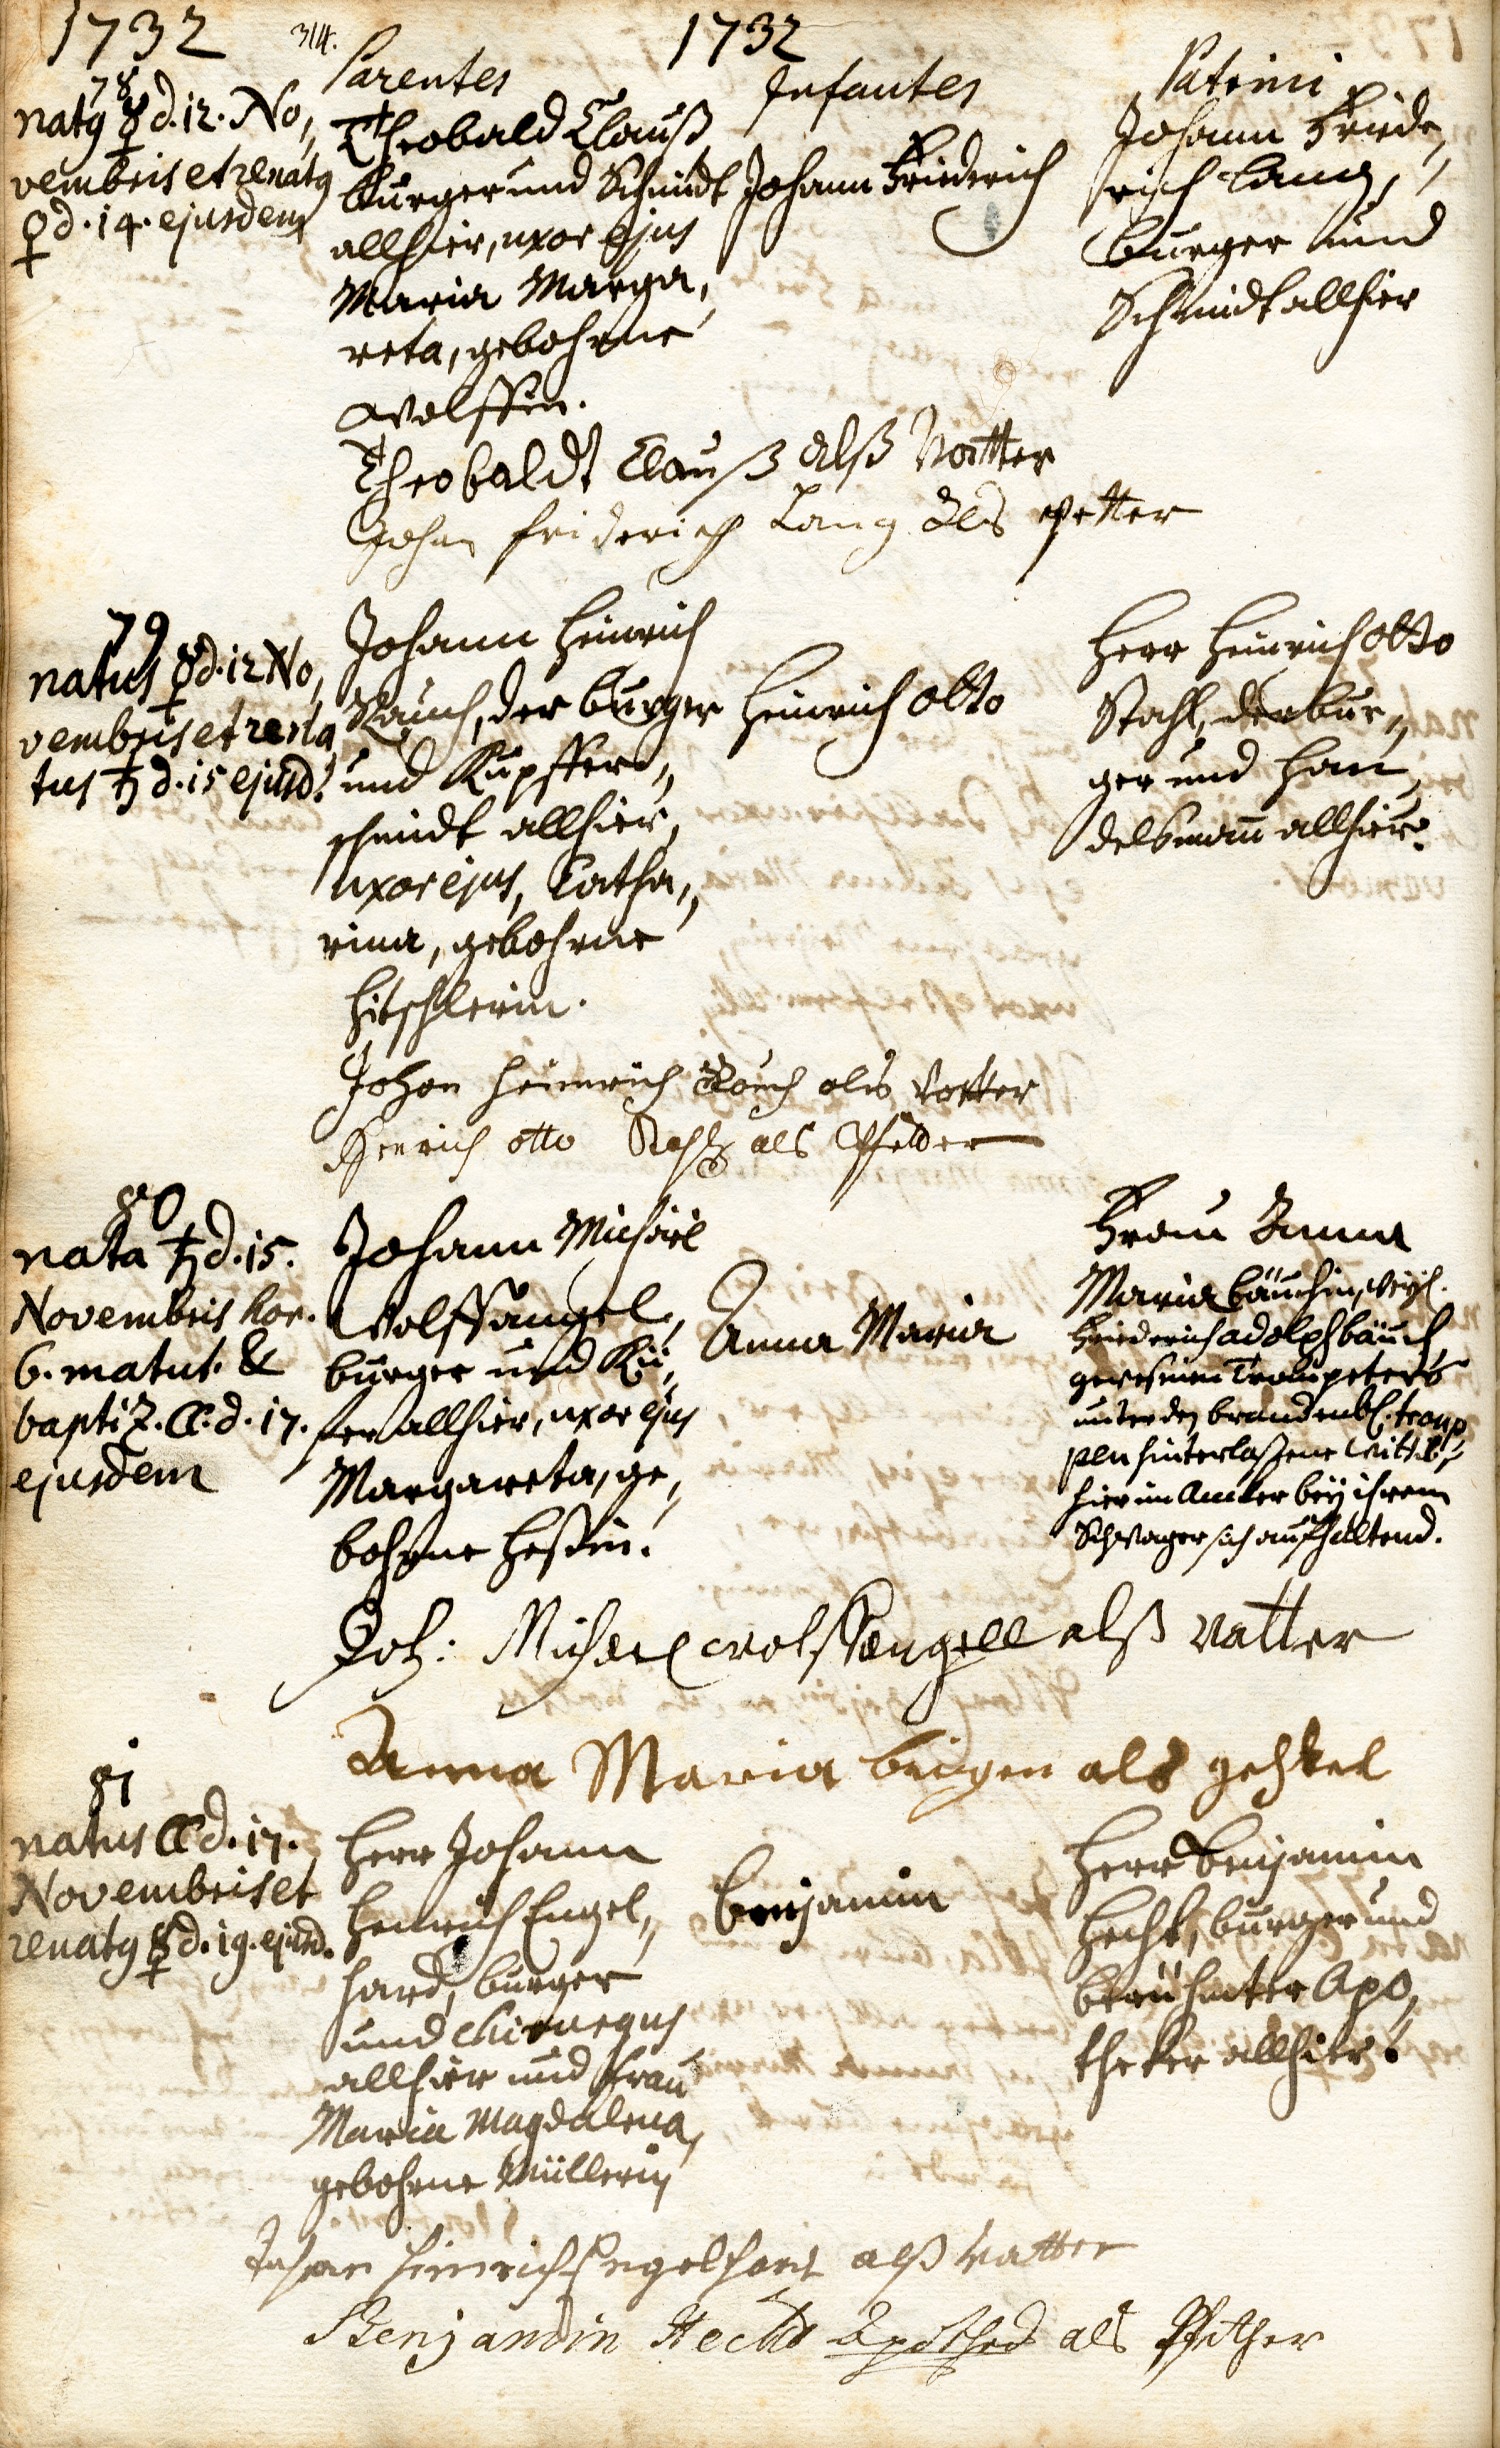 1732 314. 1732
Parentes Infantes Patrini
78
natg ☿ d. 12. No,,
vembris et renatg
♀ d. 14. ejusdem
Theobald Clauß
burger und Schmidt
allhier, uxor ejus
Maria Marga,,
reta, gebohrne
Wolffin.
Johann Friederich
Johann Friede,,
rich Lang,
burger und
Schmidt allhier
Theobaldt Clauß alß Vatter
Johan friderich Lang als Petter
79
natus ☿ d. 12 No,,
vembris et rena
tus ♄ d. 15 ejusd.
Johann Heinrich
Rauch, der burger
und Kupffer,,
schmidt allhier,
uxor ejus, Catha,,
rina, gebohrne
Hitschlerin.
Heinrich Otto
Herr Heinrich Otto
Stahl, der bur,,
ger und Han,,
delsmañ allhier.
Johan Heinrich Rauch als Vatter
Henrich Otto Stahl als Pfetder
80
nata ♄ d. 15.
Novembris hor.
6. matut. &
baptiz. ☾ d. 17.
ejusdem
Johann Michael
Wolffsangel,
burger und Kü,,
fer allhier, uxor ejus
Margareta, ge,,
bohrne Heßin.
Anna Maria
Frau Anna
Maria Bäuchin, weyl.
Friederich Adolph Bäuch
gewesenen Trompeters
unter den brandenb. troup
pen hinterlaßene Wittib,
hier im Ancker bey ihrem
Schwager sich aufhaltend.
Joh: Michael Wolffsengell alß Vatter
Anna Maria als
81
natus ☾ d. 17.
Novembris et
renatg ☿ d. 19. ejusd.
Herr Johann
Henrich Engel,,
hard, burger
und Chirurgus
allhier und Frau
Maria Magdalena,
gebohrne Müllerin
Benjamin
Herr Benjamin
Hecht, burger und
berühmter Apo,,
theker allhier.
Johan Henrich Engelhart alß Vatter
Benjamin Hecht als Pfether